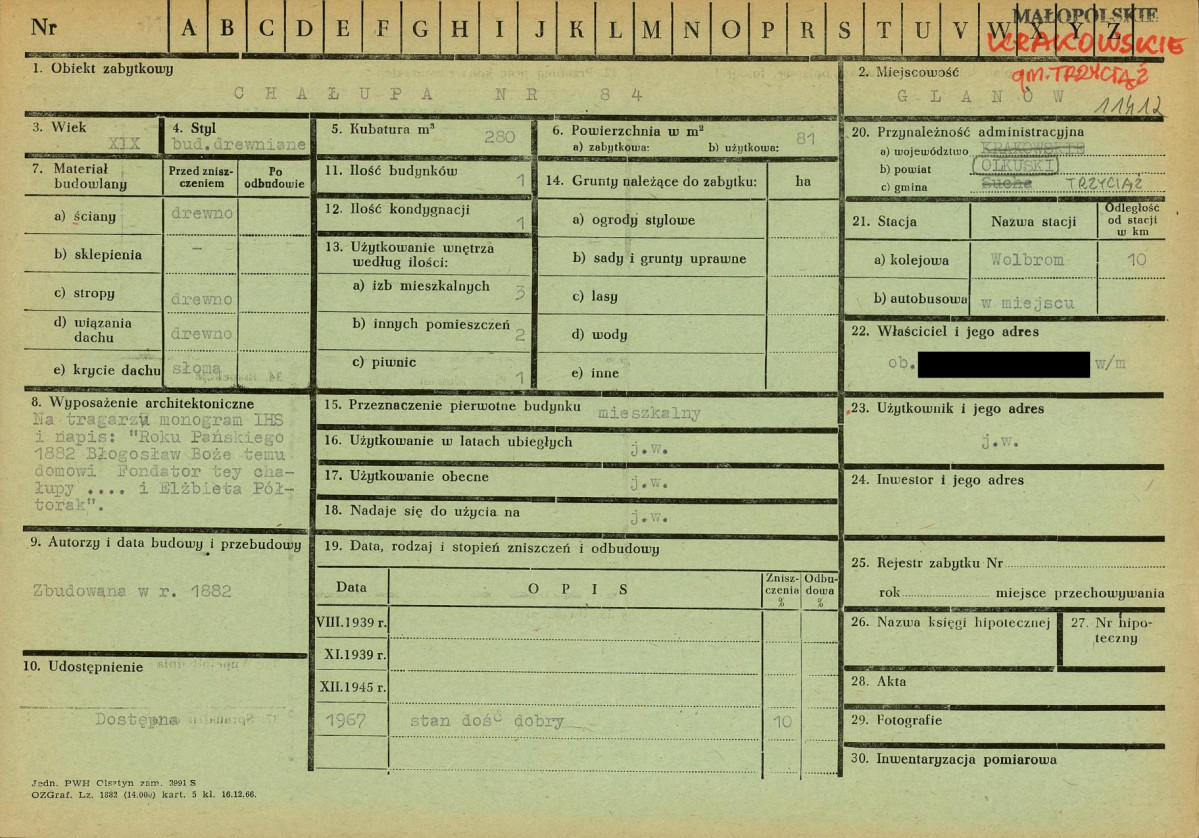 Nr A B C D E F G H I J K L M N O P R S T U V W X Y Z
MAŁOPOLSKIE
KRAKOWSKIE
gm. TRZYCIĄŻ
1. Obiekt zabytkowy
CHAŁUPA NR 84
2. Miejscowość
GLANÓW
11412
3. Wiek
XIX
4. Styl
bud.drewniane
5. Kubatura m³
280
6. Powierzchnia w m²
81
a) zabytkowa: b) użytkowa:
7. Materiał budowlany
Przed zniszczeniem
Po odbudowie
a) ściany drewno
b) sklepienia –
c) stropy drewno
d) wiązania dachu drewno
e) krycie dachu słoma
11. Ilość budynków 1
12. Ilość kondygnacji 1
13. Użytkowanie wnętrza
według ilości:
a) izb mieszkalnych 3
b) innych pomieszczeń 2
c) piwnic 1
14. Grunty należące do zabytku: ha
a) ogrody stylowe
b) sady i grunty uprawne
c) lasy
d) wody
e) inne
20. Przynależność administracyjna
a) województwo KRAKOWSKIE
b) powiat OLKUSKI
c) gmina Sucha TRZYCIĄŻ
21. Stacja
Nazwa stacji
Odległość
od stacji
w km
a) kolejowa Wolbrom 10
b) autobusowa w miejscu
22. Właściciel i jego adres
ob. w/m
8. Wyposażenie architektoniczne
Na tragarzu monogram IHS
i napis: "Roku Pańskiego
1882 Błogosław Boże temu
domowi Fondator tey cha-
łupy .... i Elżbieta Pół-
torak".
15. Przeznaczenie pierwotne budynku mieszkalny
16. Użytkowanie w latach ubiegłych j.w.
17. Użytkowanie obecne j.w.
18. Nadaje się do użycia na j.w.
23. Użytkownik i jego adres
j.w.
24. Inwestor i jego adres
9. Autorzy i data budowy i przebudowy
Zbudowana w r. 1882
19. Data, rodzaj i stopień zniszczeń i odbudowy
Data OPIS Znisz-
czenia
% Odbu-
dowa
%
VIII.1939 r.
XI.1939 r.
XII.1945 r.
1967 stan dość dobry 10
25. Rejestr zabytku Nr
rok miejsce przechowywania
26. Nazwa księgi hipotecznej
27. Nr hipo-
teczny
10. Udostępnienie
Dostępna
28. Akta
29. Fotografie
30. Inwentaryzacja pomiarowa
Jedn. PWH Olsztyn zam. 3991 S
OZGraf. Lz. 1882 (14.000) kart. 5 kl. 16.12.66.